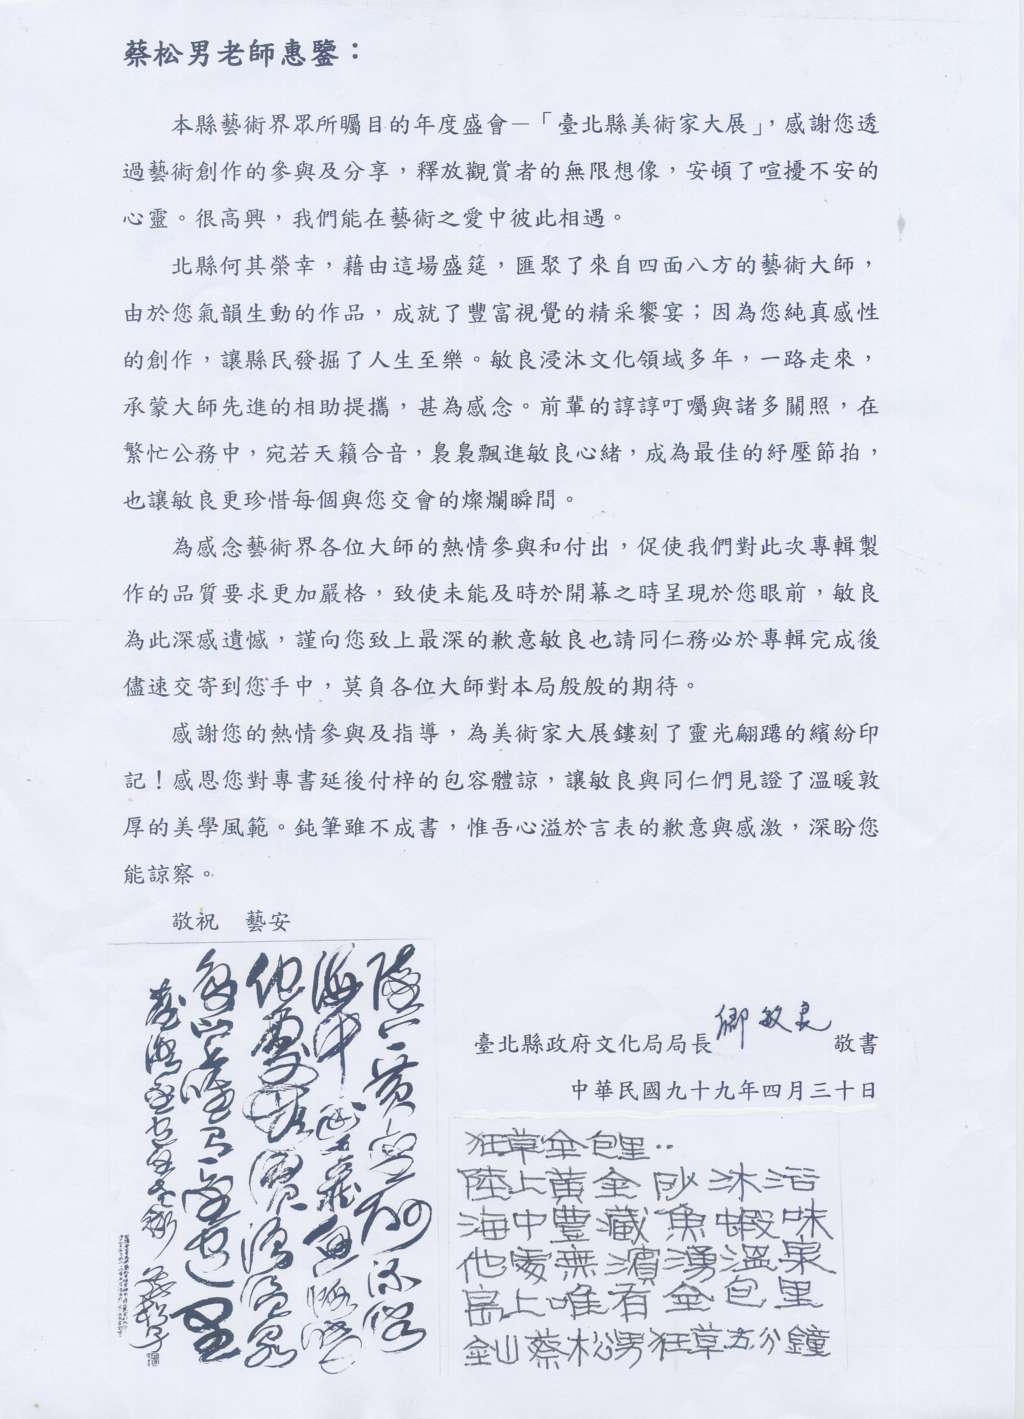 蔡松男老師惠鑒：
本縣藝術界眾所矚目的年度盛會－「臺北縣美術家大展」，感謝您透
過藝術創作的參與及分享，釋放觀賞者的無限想像，安頓了喧擾不安的
心靈。很高興，我們能在藝術之愛中彼此相遇。
北縣何其榮幸，藉由這場盛筵，匯聚了來自四面八方的藝術大師，
由於您氣韻生動的作品，成就了豐富視覺的精采饗宴；因為您純真感性
的創作，讓縣民發掘了人生至樂。敏良浸沐文化領域多年，一路走來，
承蒙大師先進的相助提攜，甚為感念。前輩的諄諄叮囑與諸多關照，在
繁忙公務中，宛若天籟合音，裊裊飄進敏良心緒，成為最佳的紓壓節拍，
也讓敏良更珍惜每個與您交會的燦爛瞬間。
為感念藝術界各位大師的熱情參與和付出，促使我們對此次專輯製
作的品質要求更加嚴格，致使未能及時於開幕之時呈現於您眼前，敏良
為此深感遺憾，謹向您致上最深的歉意敏良也請同仁務必於專輯完成後
儘速交寄到您手中，莫負各位大師對本局殷殷的期待。
感謝您的熱情參與及指導，為美術家大展鏤刻了靈光翩躚的繽紛印
記！感恩您對專書延後付梓的包容體諒，讓敏良與同仁們見證了溫暖敦
厚的美學風範。鈍筆雖不成書，惟吾心溢於言表的歉意與感激，深盼您
能諒察。
敬祝　藝安
臺北縣政府文化局局長 卿敏良 敬書
中華民國九十九年四月三十日
狂草金包里..
陸上黃金砂沐浴
海中豐藏魚蝦味
他處無濱湧溫泉
島上唯有金包里
金山蔡松男狂草五分鐘